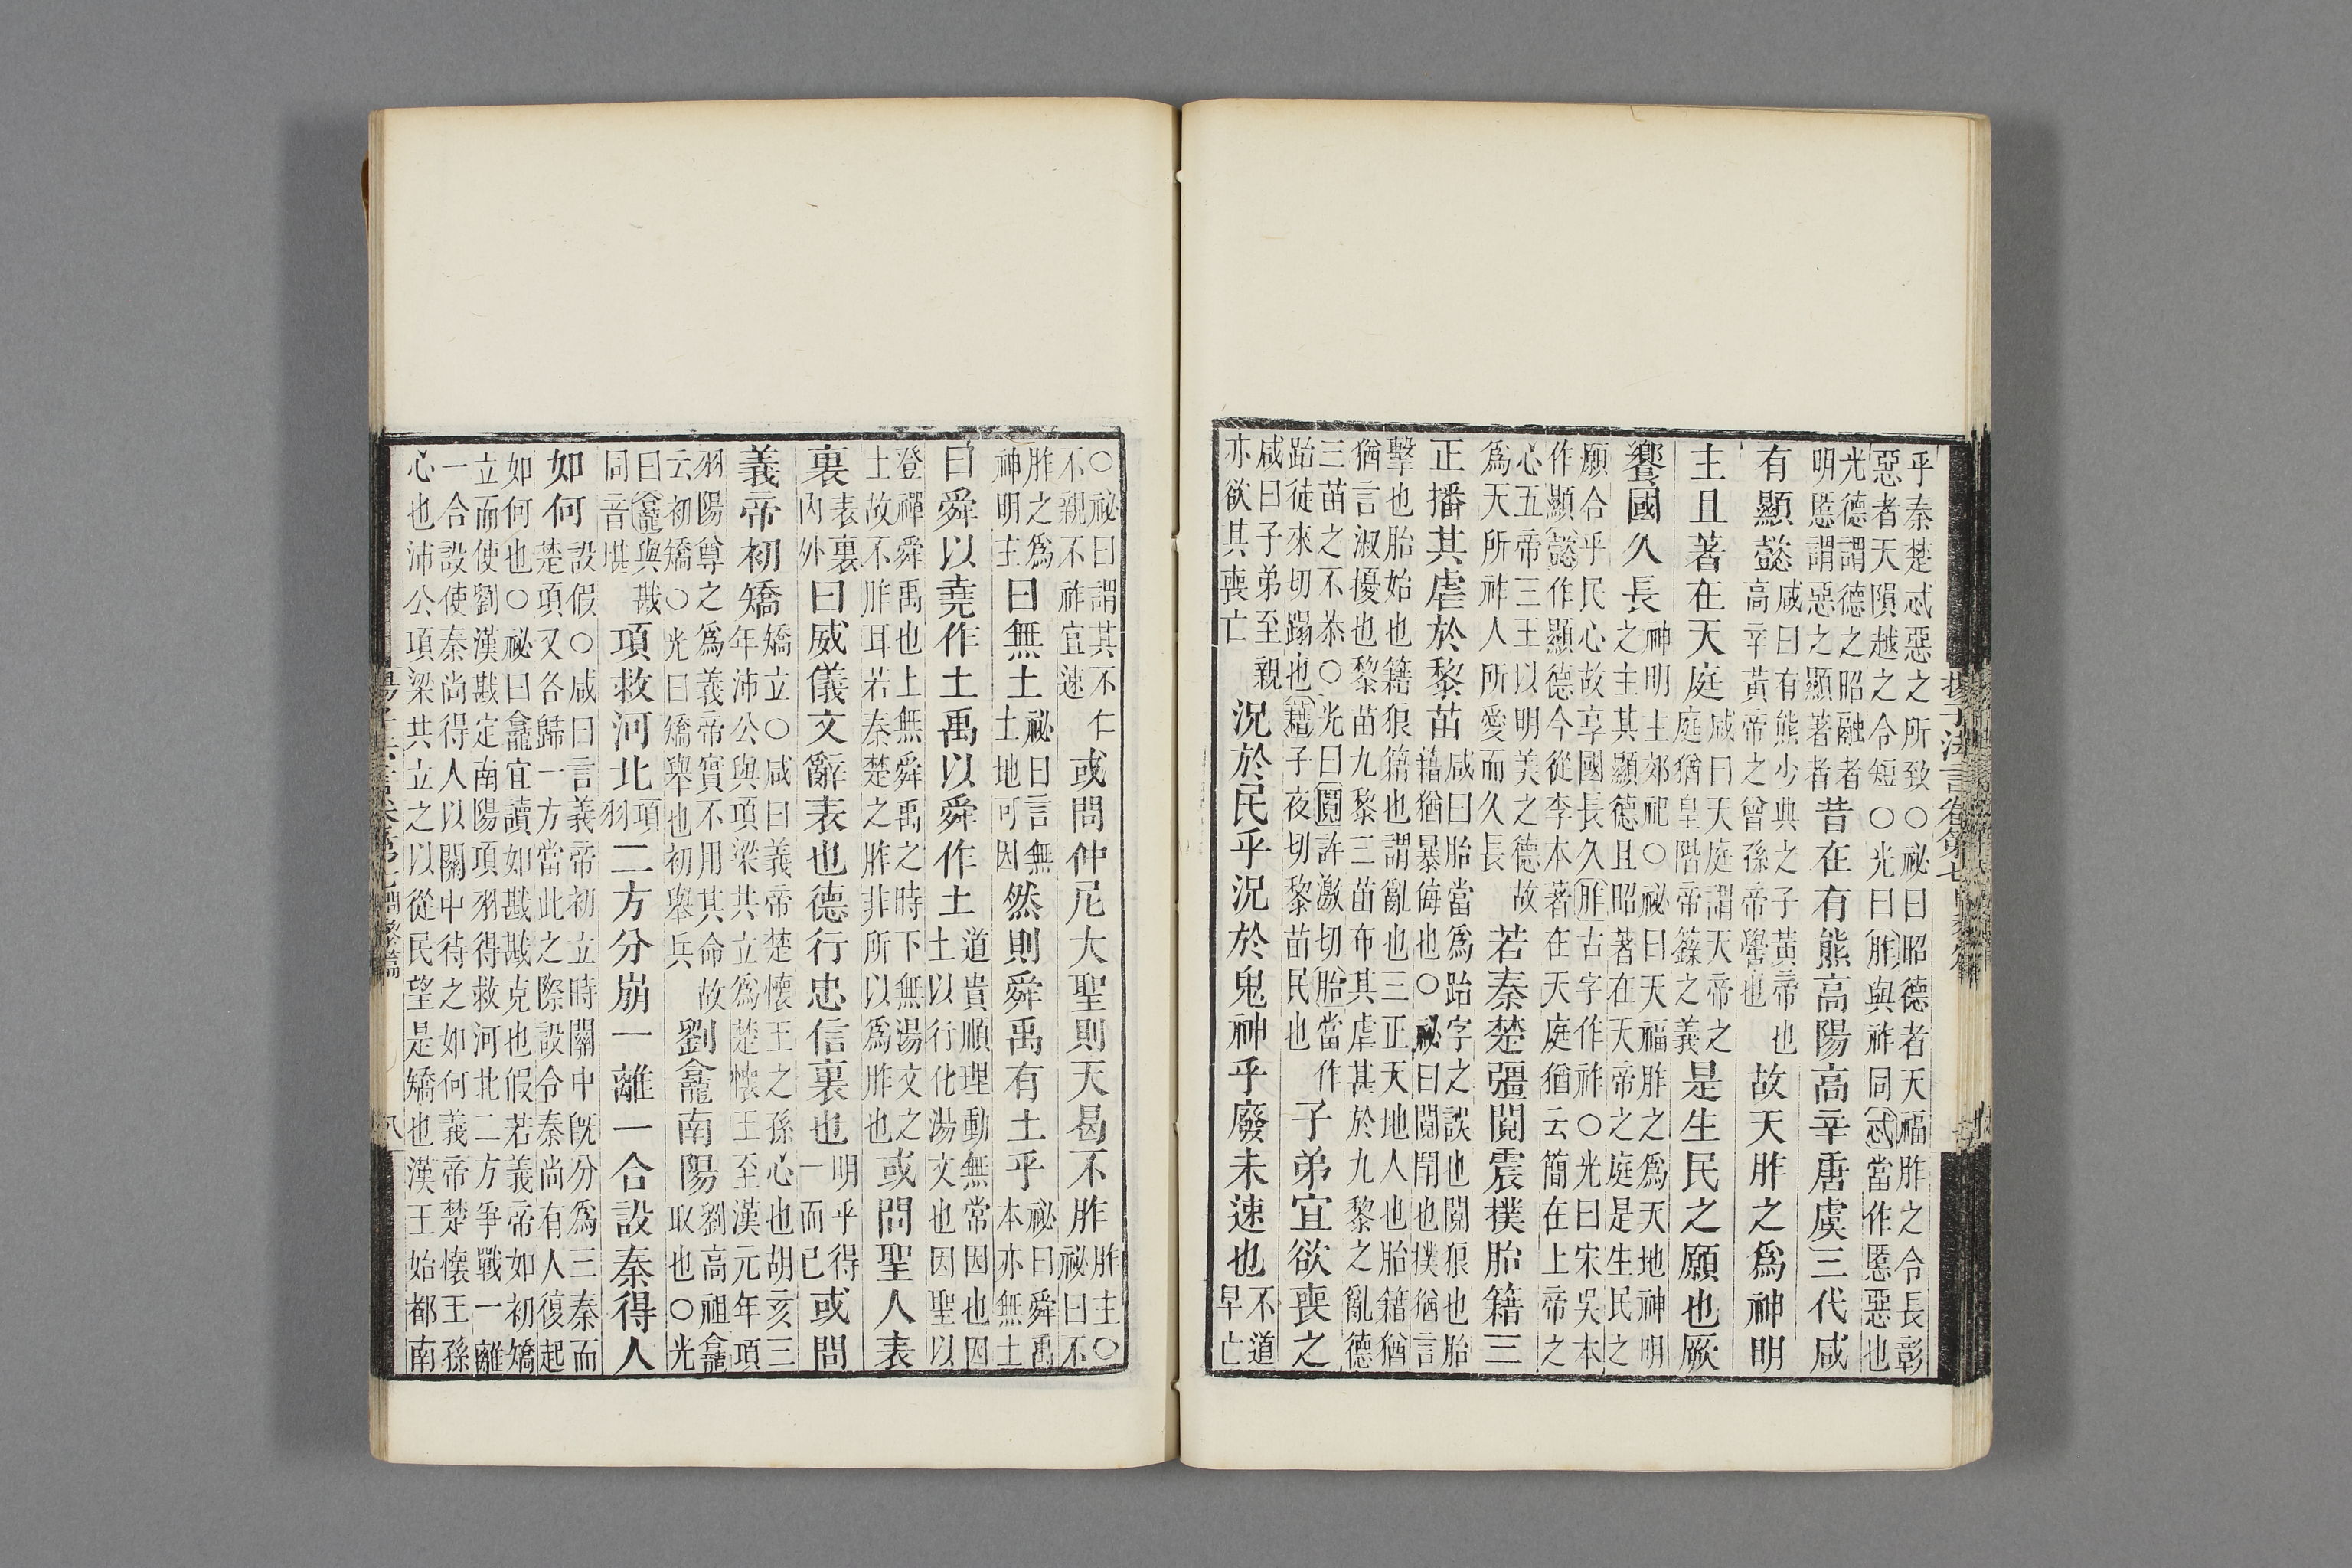 乎秦楚忒惡之所致○祕曰昭德者天福胙之令長彰
惡者天隕越之令短○光曰胙與祚同忒當作慝惡也
光德謂德之昭融者
明慝謂惡之顯著者
昔在有熊高陽高辛唐虞三代咸
有顯懿
咸曰有熊少典之子黃帝也
高辛黃帝之曾孫帝嚳也
故天胙之爲神明
主且著在天庭
咸曰天庭謂天帝之
庭猶皇階帝籙之義
是生民之願也厥
饗國久長
神明主郊祀○祕曰天福胙之爲天地神明
之主其顯德且昭著在天帝之庭是生民之
願合乎民心故享國長久胙古字作祚○光曰宋吳本
作顯懿作顯德今從李本著在天庭猶云簡在上帝之
心五帝三王以明美之德故
爲天所祚人所愛而久長
若秦楚彊鬩震撲胎籍三
正播其虐於黎苗
咸曰胎當爲跆字之誤也鬩狠也胎
籍猶暴侮也○祕曰鬩鬧也撲猶言
擊也胎始也籍狼籍也謂亂也三正天地人也胎籍猶
猶言淑擾也黎苗九黎三苗布其虐甚於九黎之亂德
三苗之不恭○光曰鬩許激切胎當作
跆徒來切蹋也籍子夜切黎苗民也
子弟宜欲喪之
咸曰子弟至親
亦欲其喪亡
況於民乎況於鬼神乎廢未速也
不道
早亡
○祕曰謂其不仁
不親不祚宜速
或問仲尼大聖則天曷不胙
胙主○
祕曰不
胙之爲
神明主
曰無土
祕曰言無
土地可因
然則舜禹有土乎
祕曰舜禹
本亦無土
曰舜以堯作土禹以舜作土
道貴順理動無常因也因
土以行化湯文也因聖以
登禪舜禹也上無舜禹之時下無湯文之
土故不胙耳若秦楚之胙非所以爲胙也
或問聖人表
裏
表裏
內外
曰威儀文辭表也德行忠信裏也
明乎得
一而已
或問
義帝初矯
矯立○咸曰義帝楚懷王之孫心也胡亥三
年沛公與項梁共立爲楚懷王至漢元年項
羽陽尊之爲義帝實不用其命故
云初矯○光曰矯舉也初舉兵
劉龕南陽
劉高祖龕
取也○光
曰龕與戡
同音堪
項救河北
項
羽
二方分崩一離一合設秦得人
如何
設假○咸曰言義帝初立時關中旣分爲三秦而
楚項又各歸一方當此之際設令秦尚有人復起
如何也○祕曰龕宜讀如戡戡克也假若義帝如初矯
立而使劉漢戡定南陽項羽得救河北二方爭戰一離
一合設使秦尚得人以關中待之如何義帝楚懷王孫
心也沛公項梁共立之以從民望是矯也漢王始都南
八